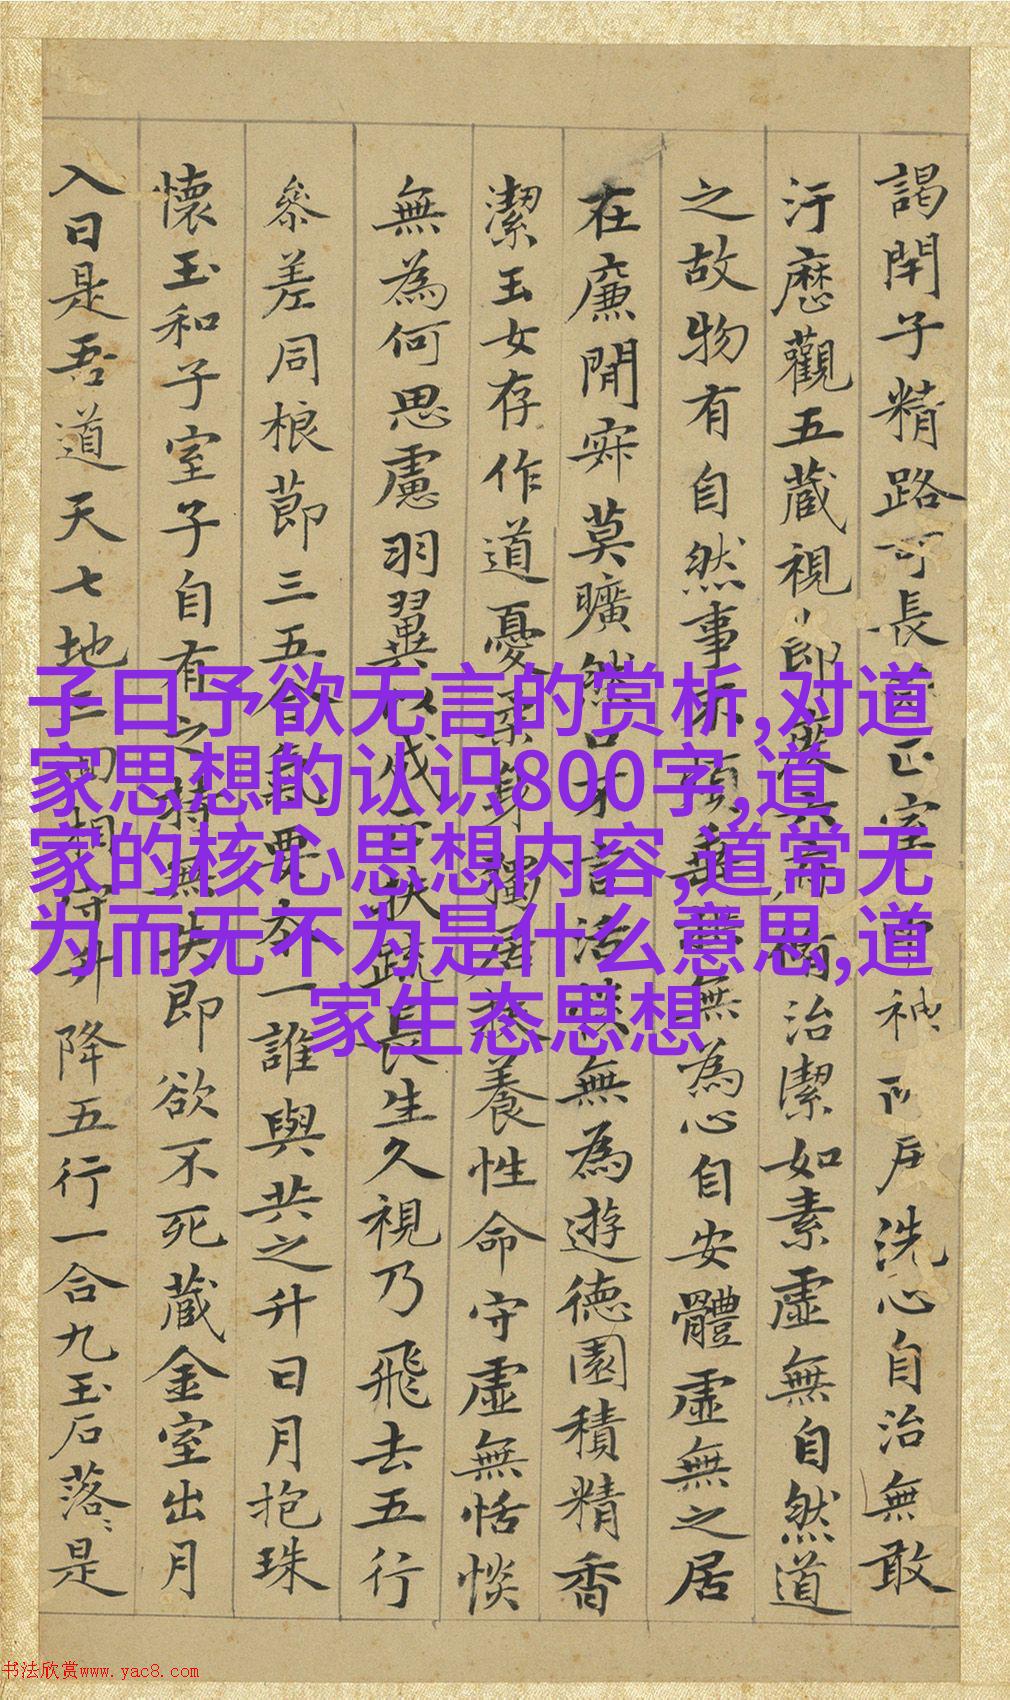 謁閇子精路可長
洗心自治無敢
汙歷觀五藏視
治潔如素虛無自然道
之故物有自然事
無為心自安體虛無之居
在廉閒寂莫曠然
無為遊德園積精香
潔玉女存作道憂
養性命守虛無恬惔
無為何思慮羽翼
長生久視乃飛去五行
參差同根節三五合氣要本一誰與共之升日月抱珠
懷玉和子室子自有之持無失即欲不死藏金室出月
入日是吾道天七地三
升降五行一合九玉石落〻是
子曰予欲无言的赏析,对道
家思想的认识800字,道
家的核心思想内容,道常无
为而无不为是什么意思,道
家生态思想
书法欣赏www.yac8.com